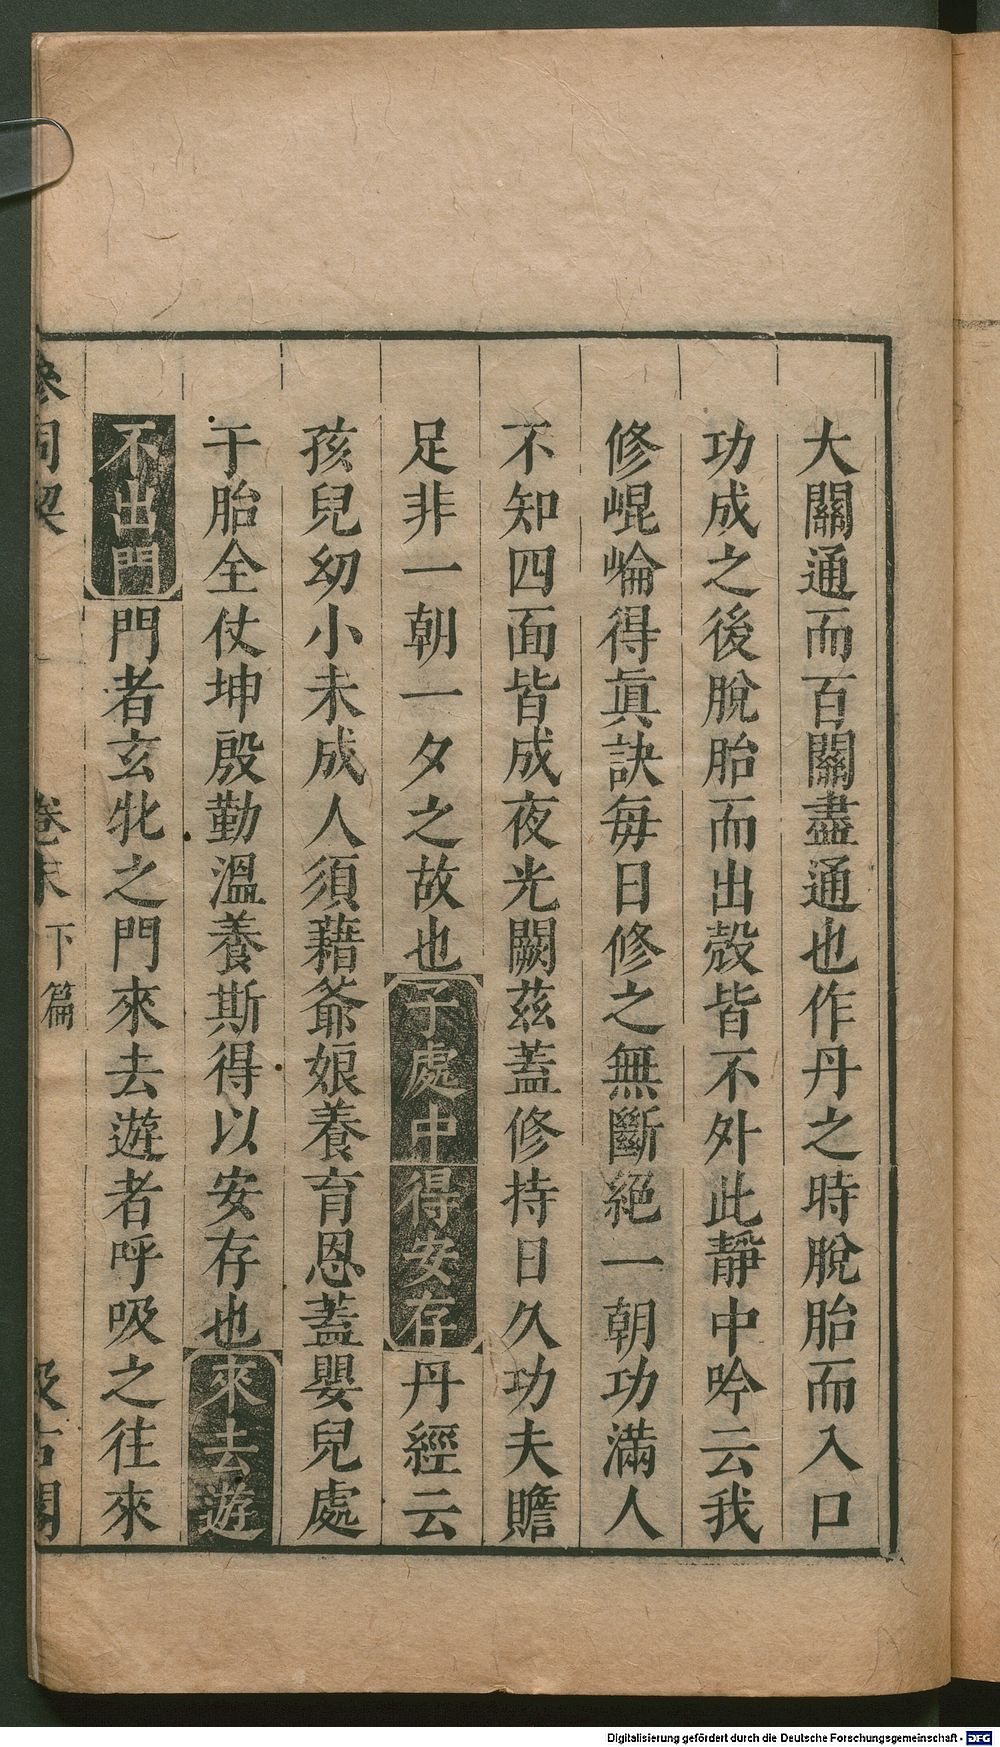 大關通而百關盡通也作丹之時脫胎而入口
功成之後脫胎而出殼皆不外此靜中吟云我
修崐崘得眞訣每日修之無斷絕一朝功滿人
不知四面皆成夜光闕茲蓋修持日久功夫贍
足非一朝一夕之故也子處中得安存丹經云
孩兒幼小未成人須藉爺娘養育恩蓋嬰兒處
于胎全仗坤殷勤溫養斯得以安存也來去遊
不出門門者玄牝之門來去遊者呼吸之往來
參同契 卷末 下篇 汲古閣
Digitalisierung gefördert durch die Deutsche Forschungsgemeinschaft - DFG